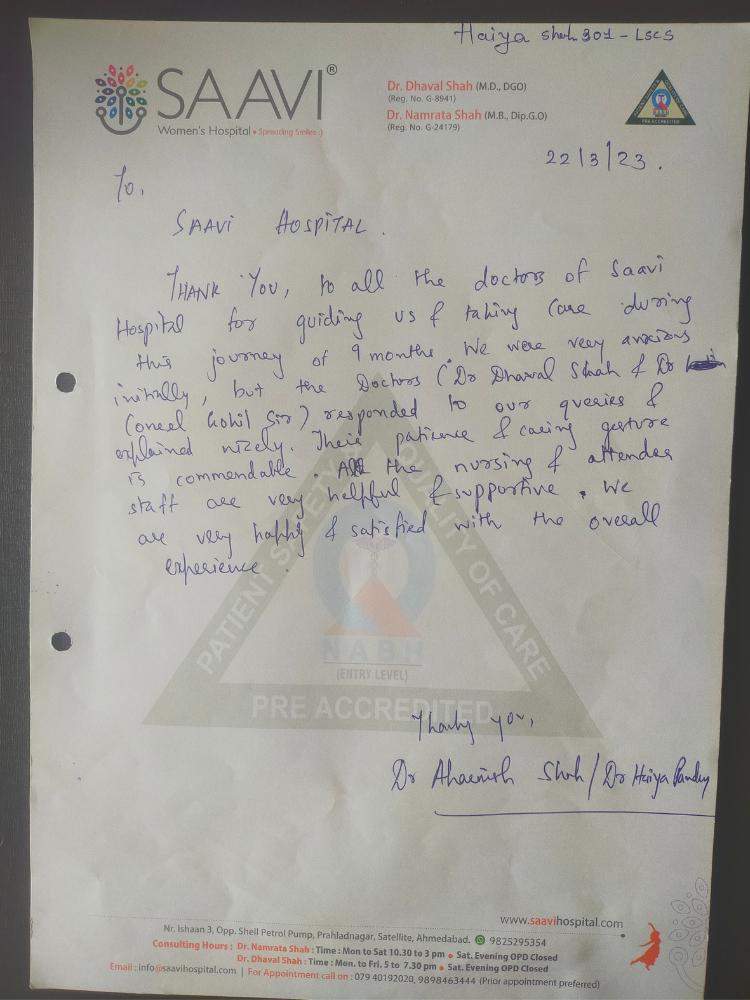 Haiya Shah 301 - LSCS
SAAVI®
Women's Hospital • Spreading Smiles :)
Dr. Dhaval Shah (M.D., DGO)
(Reg. No. G-8941)
Dr. Namrata Shah (M.B., Dip.G.O)
(Reg. No. G-24179)
PRE ACCREDITED
22/3/23.
To,
SAAVI HOSPITAL.
THANK YOU, to all the doctors of Saavi
Hospital for guiding us & taking care during
this journey of 9 months. We were very anxious
initially, but the Doctors (Dr Dhaval Shah & Dr
Coneel Gohil Sir) responded to our queries &
explained nicely. Their patience & caring gesture
is commendable. All the nursing & attendee
staff are very helpful & supportive. We
are very happy & satisfied with the overall
experience.
PATIENT SAFETY & QUALITY OF CARE
NABH
(ENTRY LEVEL)
PRE ACCREDITED
Thanking you,
Dr Shah / Dr Haiya Pandey
www.saavihospital.com
Nr. Ishaan 3, Opp. Shell Petrol Pump, Prahladnagar, Satellite, Ahmedabad. 9825295354
Consulting Hours : Dr. Namrata Shah : Time : Mon to Sat 10.30 to 3 pm • Sat. Evening OPD Closed
Dr. Dhaval Shah : Time : Mon. to Fri. 5 to 7.30 pm • Sat. Evening OPD Closed
Email : info@saavihospital.com | For Appointment call on : 079 40192020, 9898463444 (Prior appointment preferred)